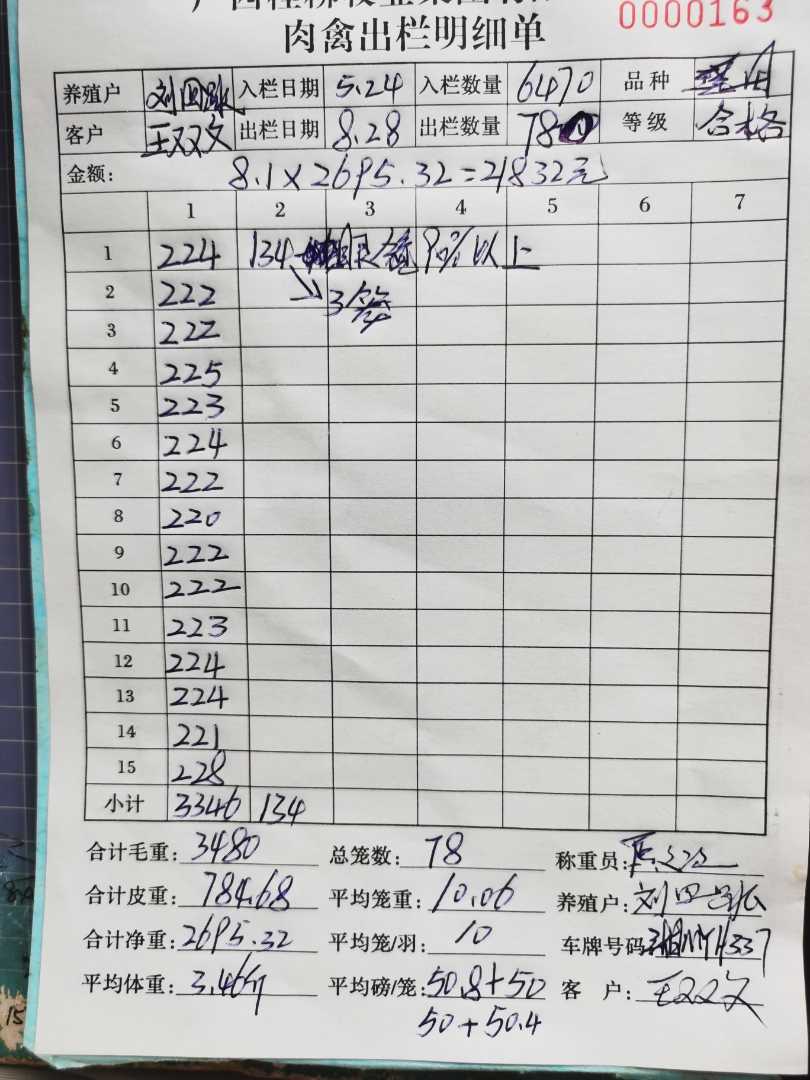 0000163
肉禽出栏明细单
养殖户 刘四 入栏日期 5.24 入栏数量 6470 品种
客户 王双文 出栏日期 8.28 出栏数量 780 等级 合格
金额: 8.1×2695.32=21832元
1 2 3 4 5 6 7
1 224 134 90%以上
2 222 3笼
3 222
4 225
5 223
6 224
7 222
8 220
9 222
10 222
11 223
12 224
13 224
14 221
15 228
小计 3346 134
合计毛重: 3480 总笼数: 78 称重员:
合计皮重: 784.68 平均笼重: 10.06 养殖户: 刘四
合计净重: 2695.32 平均笼/羽: 10 车牌号码
平均体重: 3.46 平均磅/笼: 50.8+50 客 户: 王双文
50+50.4